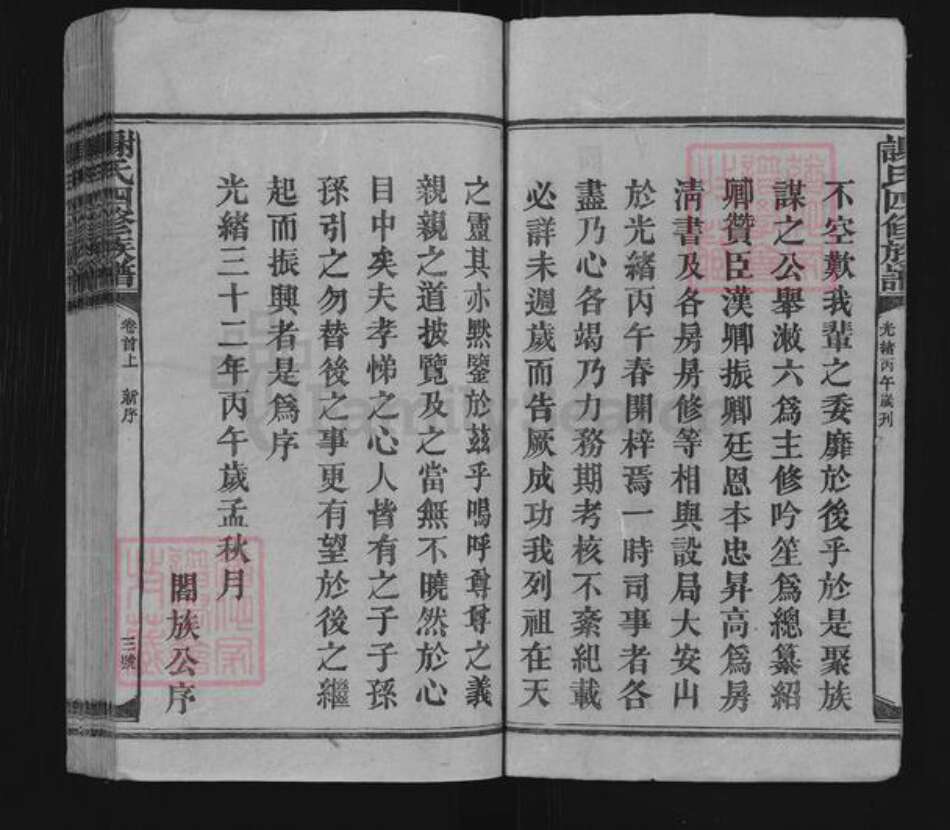 謝氏四修族譜
光緒丙午歲刊
不空歎我輩之委靡於後乎於是聚族
謀之公舉漖六為主修吟笙為總纂紹
卿贊臣漢卿振卿廷恩本忠昇高為房
清書及各房房修等相與設局大安山
於光緒丙午春開梓焉一時司事者各
盡乃心各竭乃力務期考核不紊紀載
必詳未週歲而告厥成功我列祖在天
之靈其亦黙鑒於茲乎嗚呼尊尊之義
親親之道披覽及之當無不曉然於心
目中矣夫孝悌之心人皆有之子子孫
孫引之勿替後之事更有望於後之繼
起而振興者是為序
光緒三十二年丙午歲孟秋月
闔族公序
謝氏四修族譜
卷首上 新序
三號
FamilySearch